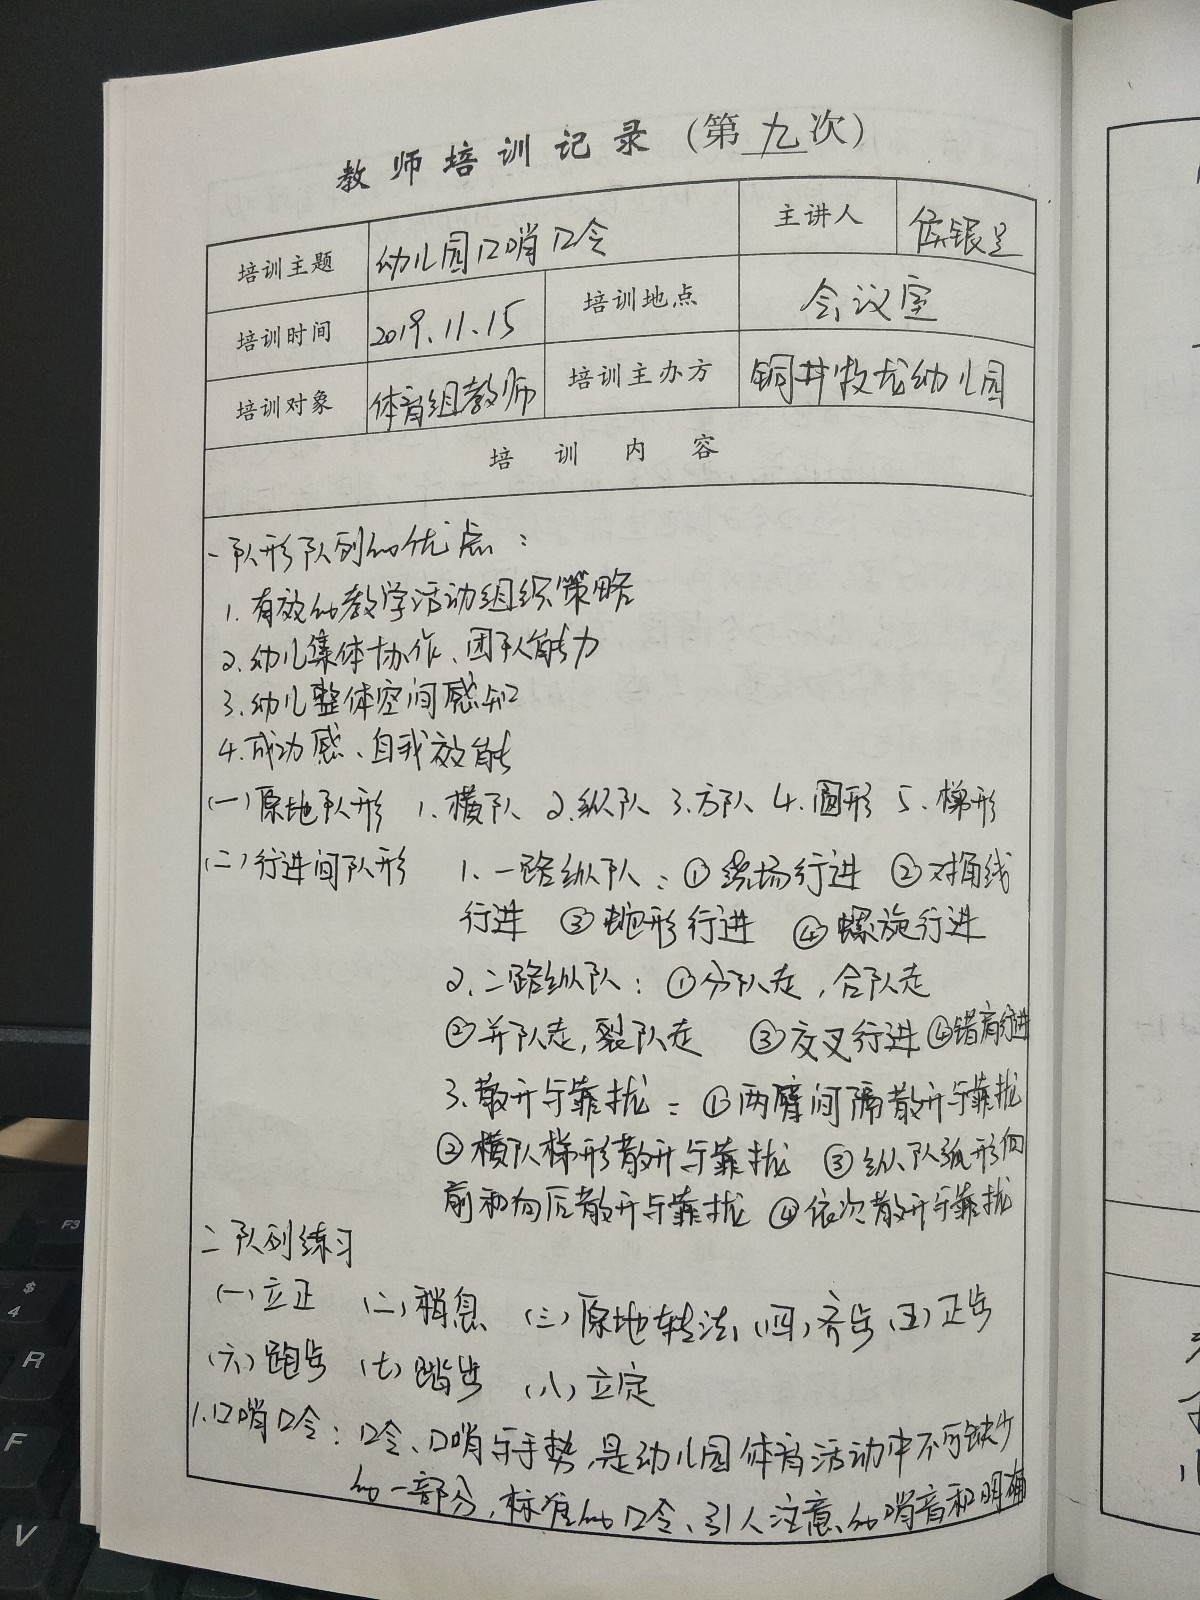 教师培训记录（第九次）
培训主题 幼儿园口哨口令 主讲人 侯银呈
培训时间 2019.11.15 培训地点 会议室
培训对象 体育组教师 培训主办方 铜井牧龙幼儿园
培训内容
一队形队列的优点：
1.有效的教学活动组织策略
2.幼儿集体协作、团队能力
3.幼儿整体空间感知
4.成功感、自我效能
(一)原地队形 1.横队 2.纵队 3.方队 4.圆形 5.梯形
(二)行进间队形 1.一路纵队：①绕场行进 ②对角线
行进 ③蛇形行进 ④螺旋行进
2.二路纵队：①分队走，合队走
②并队走，裂队走 ③交叉行进 ④错肩行进
3.散开与靠拢：①两臂间隔散开与靠拢
②横队梯形散开与靠拢 ③纵队弧形向
前和向后散开与靠拢 ④依次散开与靠拢
二队列练习
(一)立正 (二)稍息 (三)原地转法 (四)齐步 (五)正步
(六)跑步 (七)踏步 (八)立定
1.口哨口令：口令、口哨与手势，是幼儿园体育活动中不可缺少
的一部分，标准的口令、引人注意的哨音和明确
F3
$
4
R
F
V